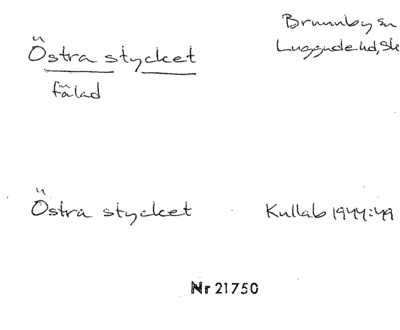 Östra stycket
Brunnby sn
Luggude hd, Sk
fälad
Östra stycket
Kullab 1944:49
Nr 21750